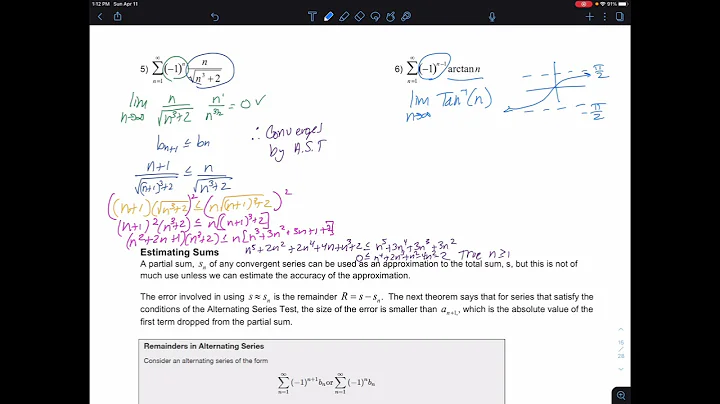 1:12 PM Sun Apr 11
91%
5) ∑_{n=1}^{∞} (-1)^n n/√(n³+2)
lim n→∞ n/√(n³+2) n¹/n^{3/2} = 0 ✓
b_{n+1} ≤ b_n
∴ Converges
by A.S.T
(n+1)/√((n+1)³+2) ≤ n/√(n³+2)
((n+1)(√(n³+2))² ≤ (n√((n+1)³+2))²
(n+1)²(n³+2) ≤ n[(n+1)³+2]
(n²+2n+1)(n³+2) ≤ n[n³+3n²+3n+1+2]
6) ∑_{n=1}^{∞} (-1)^{n-1} arctan n
lim n→∞ Tan⁻¹(n)
π/2
-π/2
Estimating Sums
True n≥1
A partial sum, s_n of any convergent series can be used as an approximation to the total sum, s, but this is not of
much use unless we can estimate the accuracy of the approximation.
The error involved in using s ≈ s_n is the remainder R = s – s_n. The next theorem says that for series that satisfy the
conditions of the Alternating Series Test, the size of the error is smaller than a_{n+1}, which is the absolute value of the
first term dropped from the partial sum.
Remainders in Alternating Series
Consider an alternating series of the form
∑_{n=1}^{∞} (-1)^{n+1} b_n or ∑_{n=1}^{∞} (-1)^n b_n
15
/
28